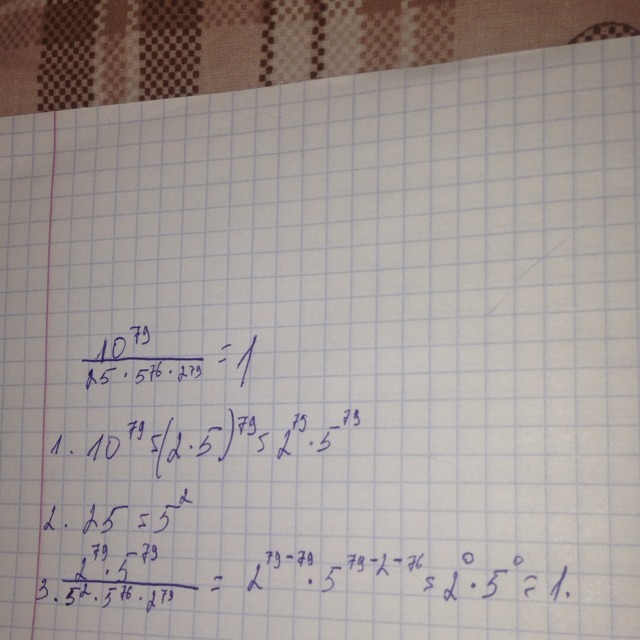 10^79 / (25 · 5^76 · 2^79) = 1
1. 10^79 = (2 · 5)^79 = 2^79 · 5^79
2. 25 = 5^2
3. (2^79 · 5^79) / (5^2 · 5^76 · 2^79) = 2^(79-79) · 5^(79-2-76) = 2^0 · 5^0 = 1.